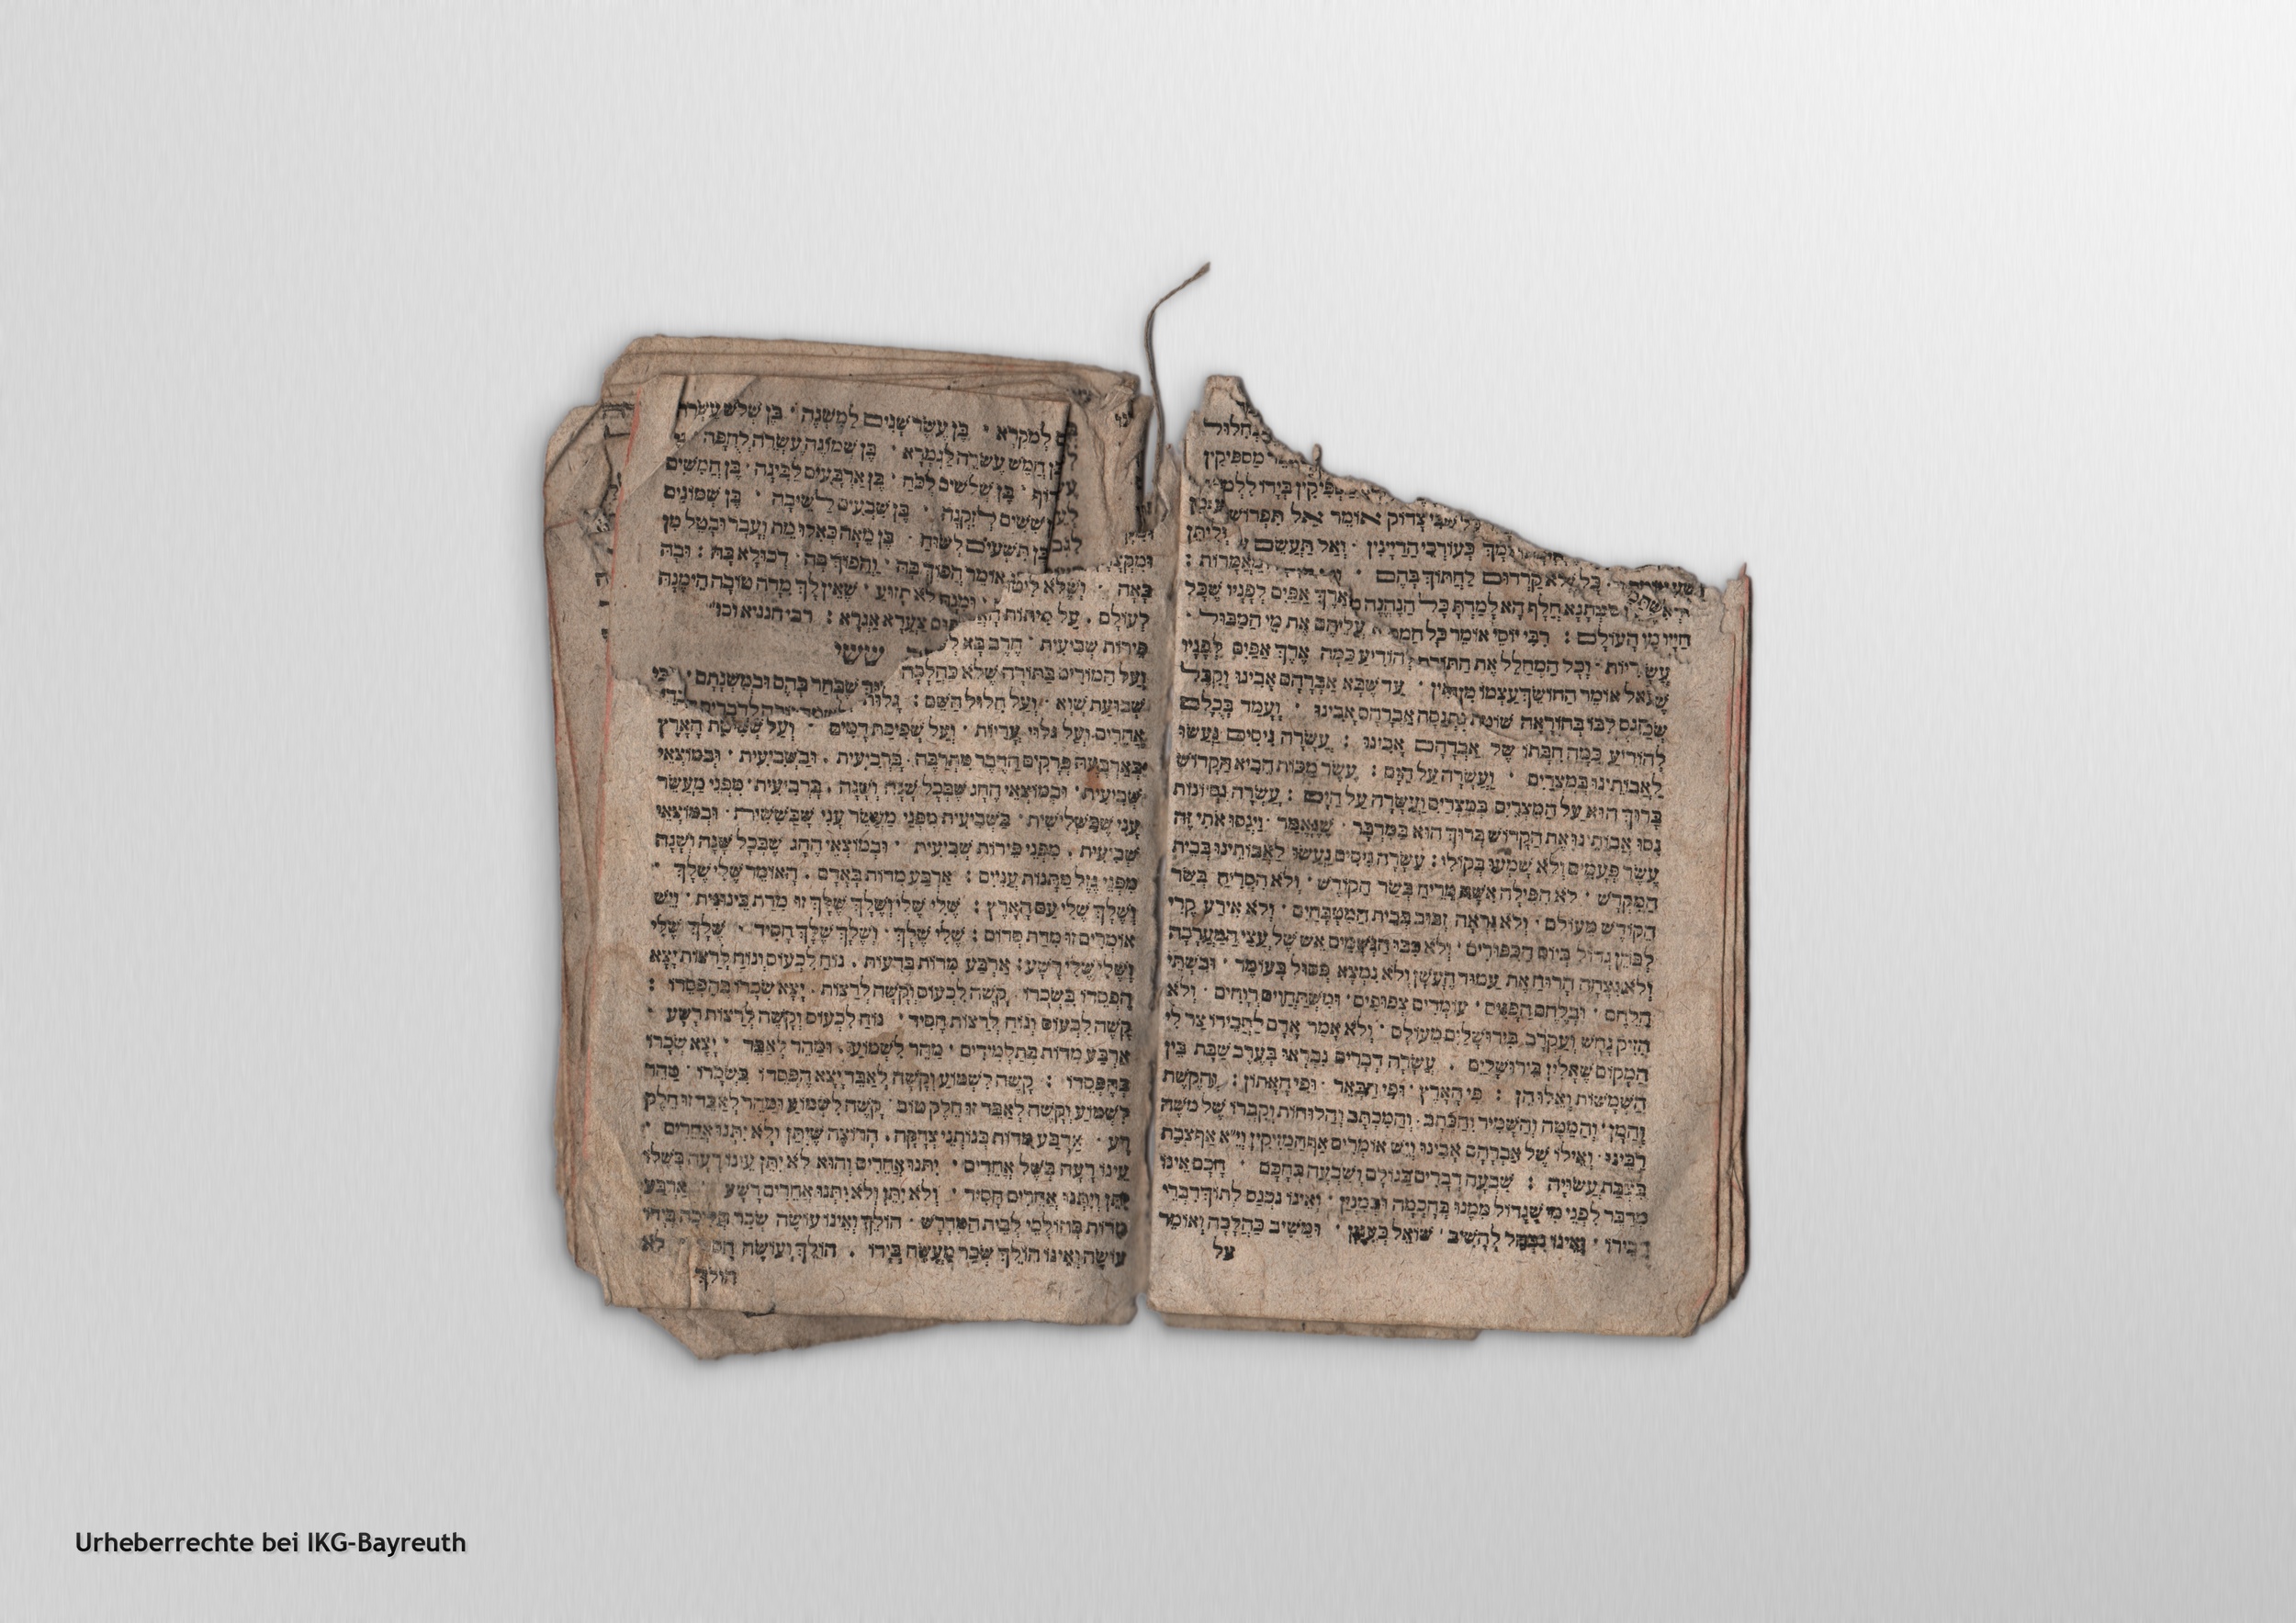 נחלול
מספיקין
ספיקין בידו ללמ
צדוק אומר אל תפרוש
כעורכי הדיינין · ואל תעשם
קרדום לחתוך בהם · מאמרות :
חלף הא למדת כל הנהנה ארך אפים לפניו שכל
חייו מן העולם : רבי יוסי אומר כל עליהם את מי המבול ·
וכל המחלל את התורה להודיע כמה ארך אפים לפניו
אומר החושך עצמו מן עד שבא אברהם אבינו וקבל
לבו בהוראה שוטה נתנסה אברהם אבינו · ועמד בכולם
להודיע כמה חבתו של אברהם אבינו : עשרה ניסים נעשו
לאבותינו במצרים · ועשרה על הים : עשר מכות הביא הקדוש
ברוך הוא על המצרים במצרים ועשרה על הים : עשרה נסיונות
נסו אבותינו את הקדוש ברוך הוא במדבר · שנאמר · וינסו אתי זה
עשר פעמים ולא שמעו בקולי : עשרה ניסים נעשו לאבותינו בבית
המקדש · לא הפילה אשה מריח בשר הקודש · ולא הסריח בשר
הקודש מעולם · ולא נראה זבוב בבית המטבחים · ולא אירע קרי
לכהן גדול ביום הכפורים · ולא כבו הגשמים אש של עצי המערכה
ולא נצחה הרוח את עמוד העשן ולא נמצא פסול בעומר · ובשתי
הלחם · ובלחם הפנים · עומדים צפופים · ומשתחוים רווחים · ולא
הזיק נחש ועקרב בירושלים מעולם · ולא אמר אדם לחבירו צר לי
המקום שאלין בירושלים . עשרה דברים נבראו בערב שבת בין
השמשות ואלו הן : פי הארץ · ופי הבאר · ופי האתון : והקשת
והמן · והמטה והשמיר והכתב · והמכתב והלוחות וקברו של משה
רבינו · ואילו של אברהם אבינו ויש אומרים אף המזיקין וי״א אף צבת
בצבת עשויה : שבעה דברים בגולם ושבעה בחכם · חכם אינו
מדבר לפני מי שגדול ממנו בחכמה ובמנין · ואינו נכנס לתוך דברי
חבירו · ואינו נבהל להשיב · שואל כענין · ומשיב כהלכה ואומר
על
למקרא · בן עשר שנים למשנה · בן שלש עשרה
בן חמש עשרה לגמרא · בן שמונה עשרה לחופה ·
בן שלשים לכח · בן ארבעים לבינה · בן חמשים
ששים לזקנה · בן שבעים לשיבה · בן שמונים
בן תשעים לשוח · בן מאה כאלו מת ועבר ובטל מן
אומר הפוך בה · והפוך בה · דכולא בה : ובה
ומנה לא תזוע · שאין לך מדה טובה הימנה
צערא אגרא : רבי חנניא וכו״
ששי
שבחר בהם ובמשנתם ·
באה · ושלא
לעולם . על מיתות
פירות שביעית · חרב בא
ועל המורים בתורה שלא כהלכה
שבועת שוא · ועל חלול השם : גלות
אחרים ועל גלוי עריות · ועל שפיכת דמים · ועל שמיטת הארץ
בארבעה פרקים הדבר מתרבה · ברביעית . ובשביעית · ובמוצאי
שביעית · ובמוצאי החג שבכל שנה ושנה . ברביעית · מפני מעשר
עני שבשלישית · בשביעית מפני מעשר עני שבששית · ובמוצאי
שביעית . מפני פירות שביעית · ובמוצאי החג שבכל שנה ושנה
מפני גזל מתנות עניים : ארבע מדות באדם . האומר שלי שלך ·
ושלך שלי עם הארץ : שלי שלי ושלך שלך זו מדת בינונית · ויש
אומרים זו מדת סדום : שלי שלך · ושלך שלך חסיד · שלך שלי
ושלי שלי רשע : ארבע מדות בדעות . נוח לכעוס ונוח לרצות יצא
הפסדו בשכרו · קשה לכעוס וקשה לרצות · יצא שכרו בהפסדו :
קשה לכעוס ונוח לרצות חסיד · נוח לכעוס וקשה לרצות רשע ·
ארבע מדות בתלמידים · מהר לשמוע . ומהר לאבד · יצא שכרו
בהפסדו : קשה לשמוע וקשה לאבד יצא הפסדו בשכרו · מהר
לשמוע וקשה לאבד זו חלק טוב · קשה לשמוע ומהר לאבד זו חלק
רע · ארבע מדות בנותני צדקה . הרוצה שיתן ולא יתנו אחרים ·
עינו רעה בשל אחרים · יתנו אחרים והוא לא יתן עינו רעה בשלו
יתן ויתנו אחרים חסיד · ולא יתן ולא יתנו אחרים רשע · ארבע
מדות בהולכי לבית המדרש · הולך ואינו עושה שכר הליכה בידו
עושה ואינו הולך שכר מעשה בידו . הולך ועושה לא
הולך
Urheberrechte bei IKG-Bayreuth